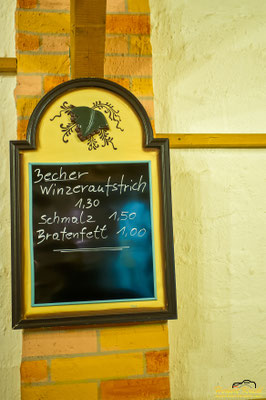 Becher
Winzeraufstrich
1,30
Schmalz 1,50
Bratenfett 1,00